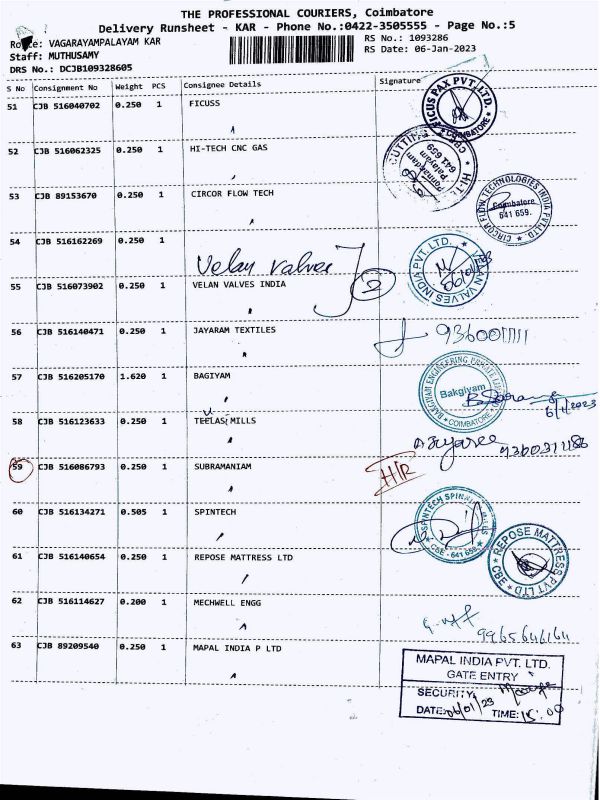 THE PROFESSIONAL COURIERS, Coimbatore
Delivery Runsheet - KAR - Phone No.:0422-3505555 - Page No.:5
Route: VAGARAYAMPALAYAM KAR
RS No.: 1093286
Staff: MUTHUSAMY
RS Date: 06-Jan-2023
DRS No.: DCJB109328605
S No Consignment No Weight PCS Consignee Details Signature
51 CJB 516040702 0.250 1 FICUSS
FICUS PAX PVT. LTD. COIMBATORE
52 CJB 516062325 0.250 1 HI-TECH CNC GAS
CUTTING HI-T 641 659
53 CJB 89153670 0.250 1 CIRCOR FLOW TECH
CIRCOR FLOW TECHNOLOGIES INDIA PVT.LTD. Coimbatore 641 659.
54 CJB 516162269 0.250 1
Velan Valves 2
VALVES INDIA PVT. LTD.
55 CJB 516073902 0.250 1 VELAN VALVES INDIA
56 CJB 516140471 0.250 1 JAYARAM TEXTILES
57 CJB 516205170 1.620 1 BAGIYAM
BAKGIYAM ENGINEERING PRIVATE LIMITED Bakgiyam COIMBATORE
6/1/2023
58 CJB 516123633 0.250 1 TEELAS MILLS
59 CJB 516086793 0.250 1 SUBRAMANIAM
60 CJB 516134271 0.505 1 SPINTECH
SPINTECH SPINN MILLS CBE - 641 659
61 CJB 516140654 0.250 1 REPOSE MATTRESS LTD
REPOSE MATTRESS PVT LTD CBE
62 CJB 516114627 0.200 1 MECHWELL ENGG
63 CJB 89209540 0.250 1 MAPAL INDIA P LTD
MAPAL INDIA PVT. LTD.
GATE ENTRY
SECURITY
DATE: 06/01/23 TIME: 15:00